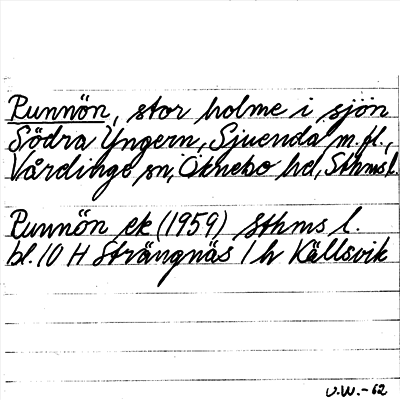 Runnön, stor holme i sjön
Södra Yngern, Sjuenda m.fl.,
Vårdinge sn, Öknebo hd, Sthms l.
Runnön ek (1959) Sthms l.
bl. 10 H Strängnäs 1 h Källsvik
U.W. -62